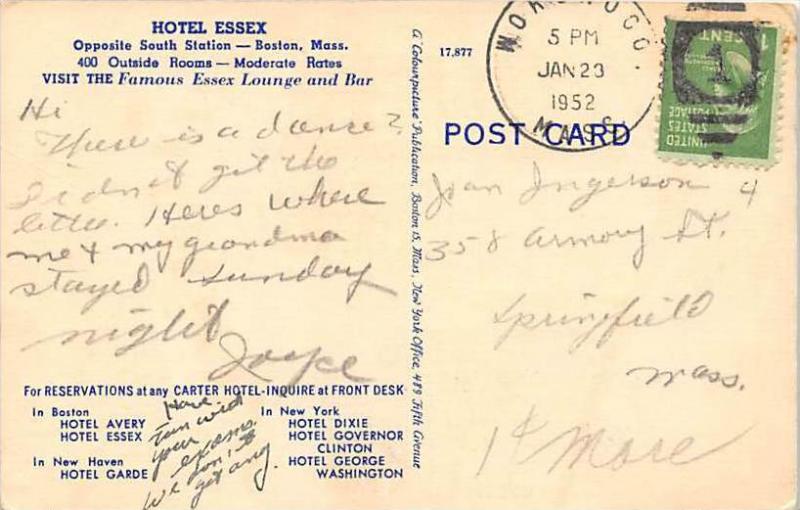 HOTEL ESSEX
Opposite South Station — Boston, Mass.
400 Outside Rooms — Moderate Rates
VISIT THE Famous Essex Lounge and Bar
Hi
There is a dance?
I didn't get the
letter. Heres where
me & my grandma
stayed Sunday
night
Joyce
For RESERVATIONS at any CARTER HOTEL-INQUIRE at FRONT DESK
In Boston
HOTEL AVERY
HOTEL ESSEX
In New Haven
HOTEL GARDE
Have
fun with
your
exams
we don't
get any.
In New York
HOTEL DIXIE
HOTEL GOVERNOR
CLINTON
HOTEL GEORGE
WASHINGTON
A "Colourpicture" Publication, Boston 15, Mass., New York Office, 489 Fifth Avenue
17,877
5 PM
JAN 23
1952
MASS.
1 CENT
UNITED
STATES
POSTAGE
POST CARD
Joan Ingerson 4
358 Armory St.
Springfield
Mass.
More